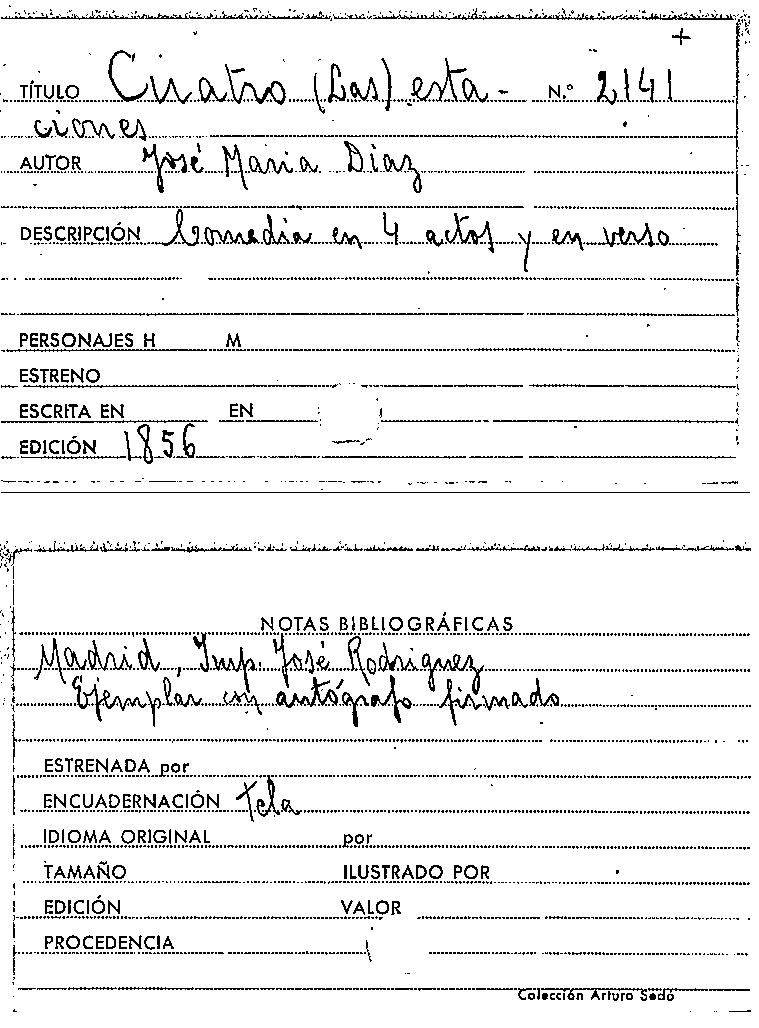 +
TÍTULO Cuatro (Las) esta- N.º 2141
ciones
AUTOR José Maria Diaz
DESCRIPCIÓN Comedia en 4 actos y en verso
PERSONAJES H M
ESTRENO
ESCRITA EN EN
EDICIÓN 1856
NOTAS BIBLIOGRÁFICAS
Madrid, Imp. José Rodriguez
Ejemplar con autógrafo firmado
ESTRENADA por
ENCUADERNACIÓN Tela
IDIOMA ORIGINAL por
TAMAÑO ILUSTRADO POR
EDICIÓN VALOR
PROCEDENCIA
Colección Arturo Sedó